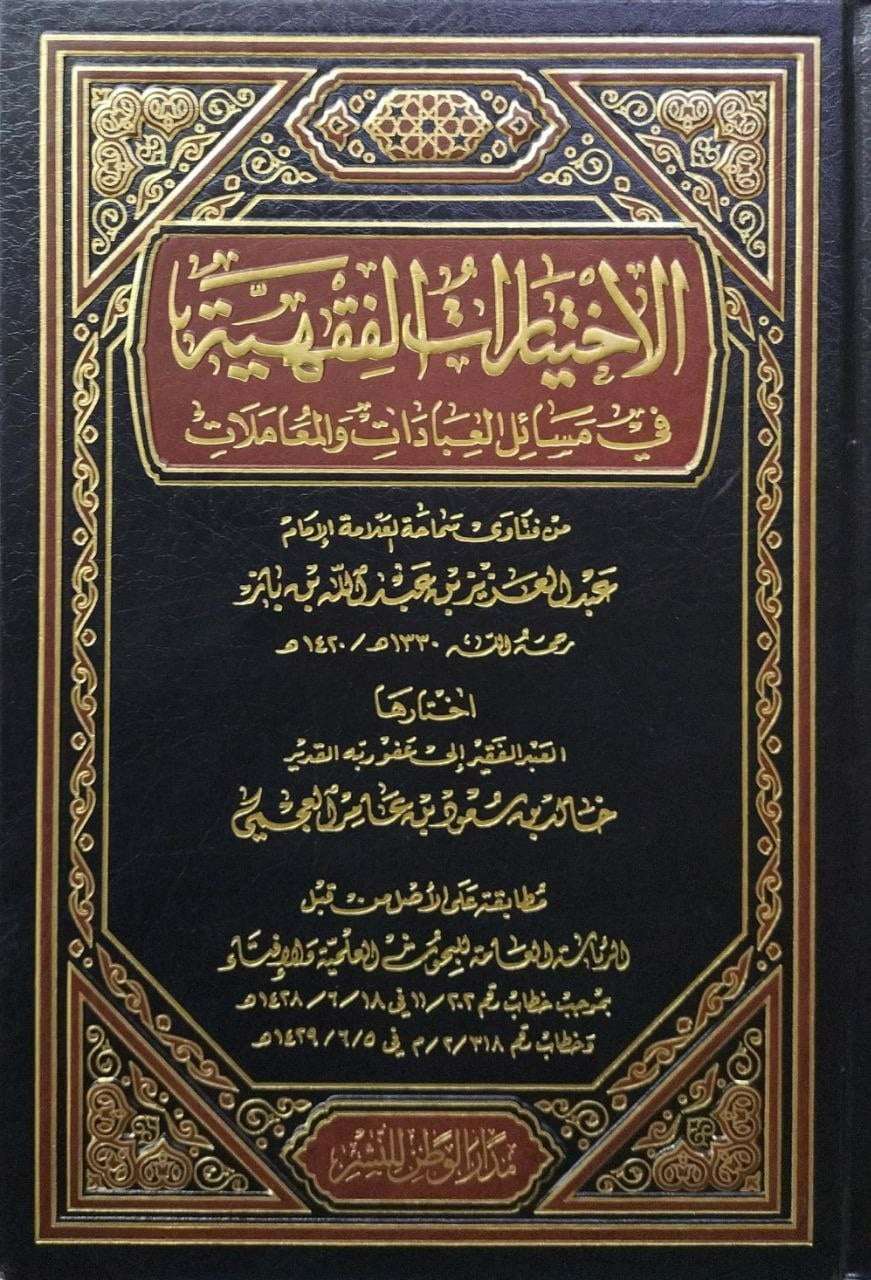 الاختيارات الفقهية
في مسائل العبادات والمعاملات
من فتاوى سماحة العلامة الإمام
عبد العزيز بن عبد الله بن باز
رحمه الله ١٣٣٠هـ/١٤٢٠هـ
اختارها
العبد الفقير إلى عفو ربه القدير
خالد بن سعود بن عامر العجمي
مطابقة على الأصل من قبل
الرئاسة العامة للبحوث العلمية والإفتاء
بموجب خطاب رقم ١١/٢٠٢ في ١٤٢٨/٦/١٨هـ
وخطاب رقم ٢/٣١٨/م في ١٤٢٩/٦/٥هـ
مدار الوطن للنشر